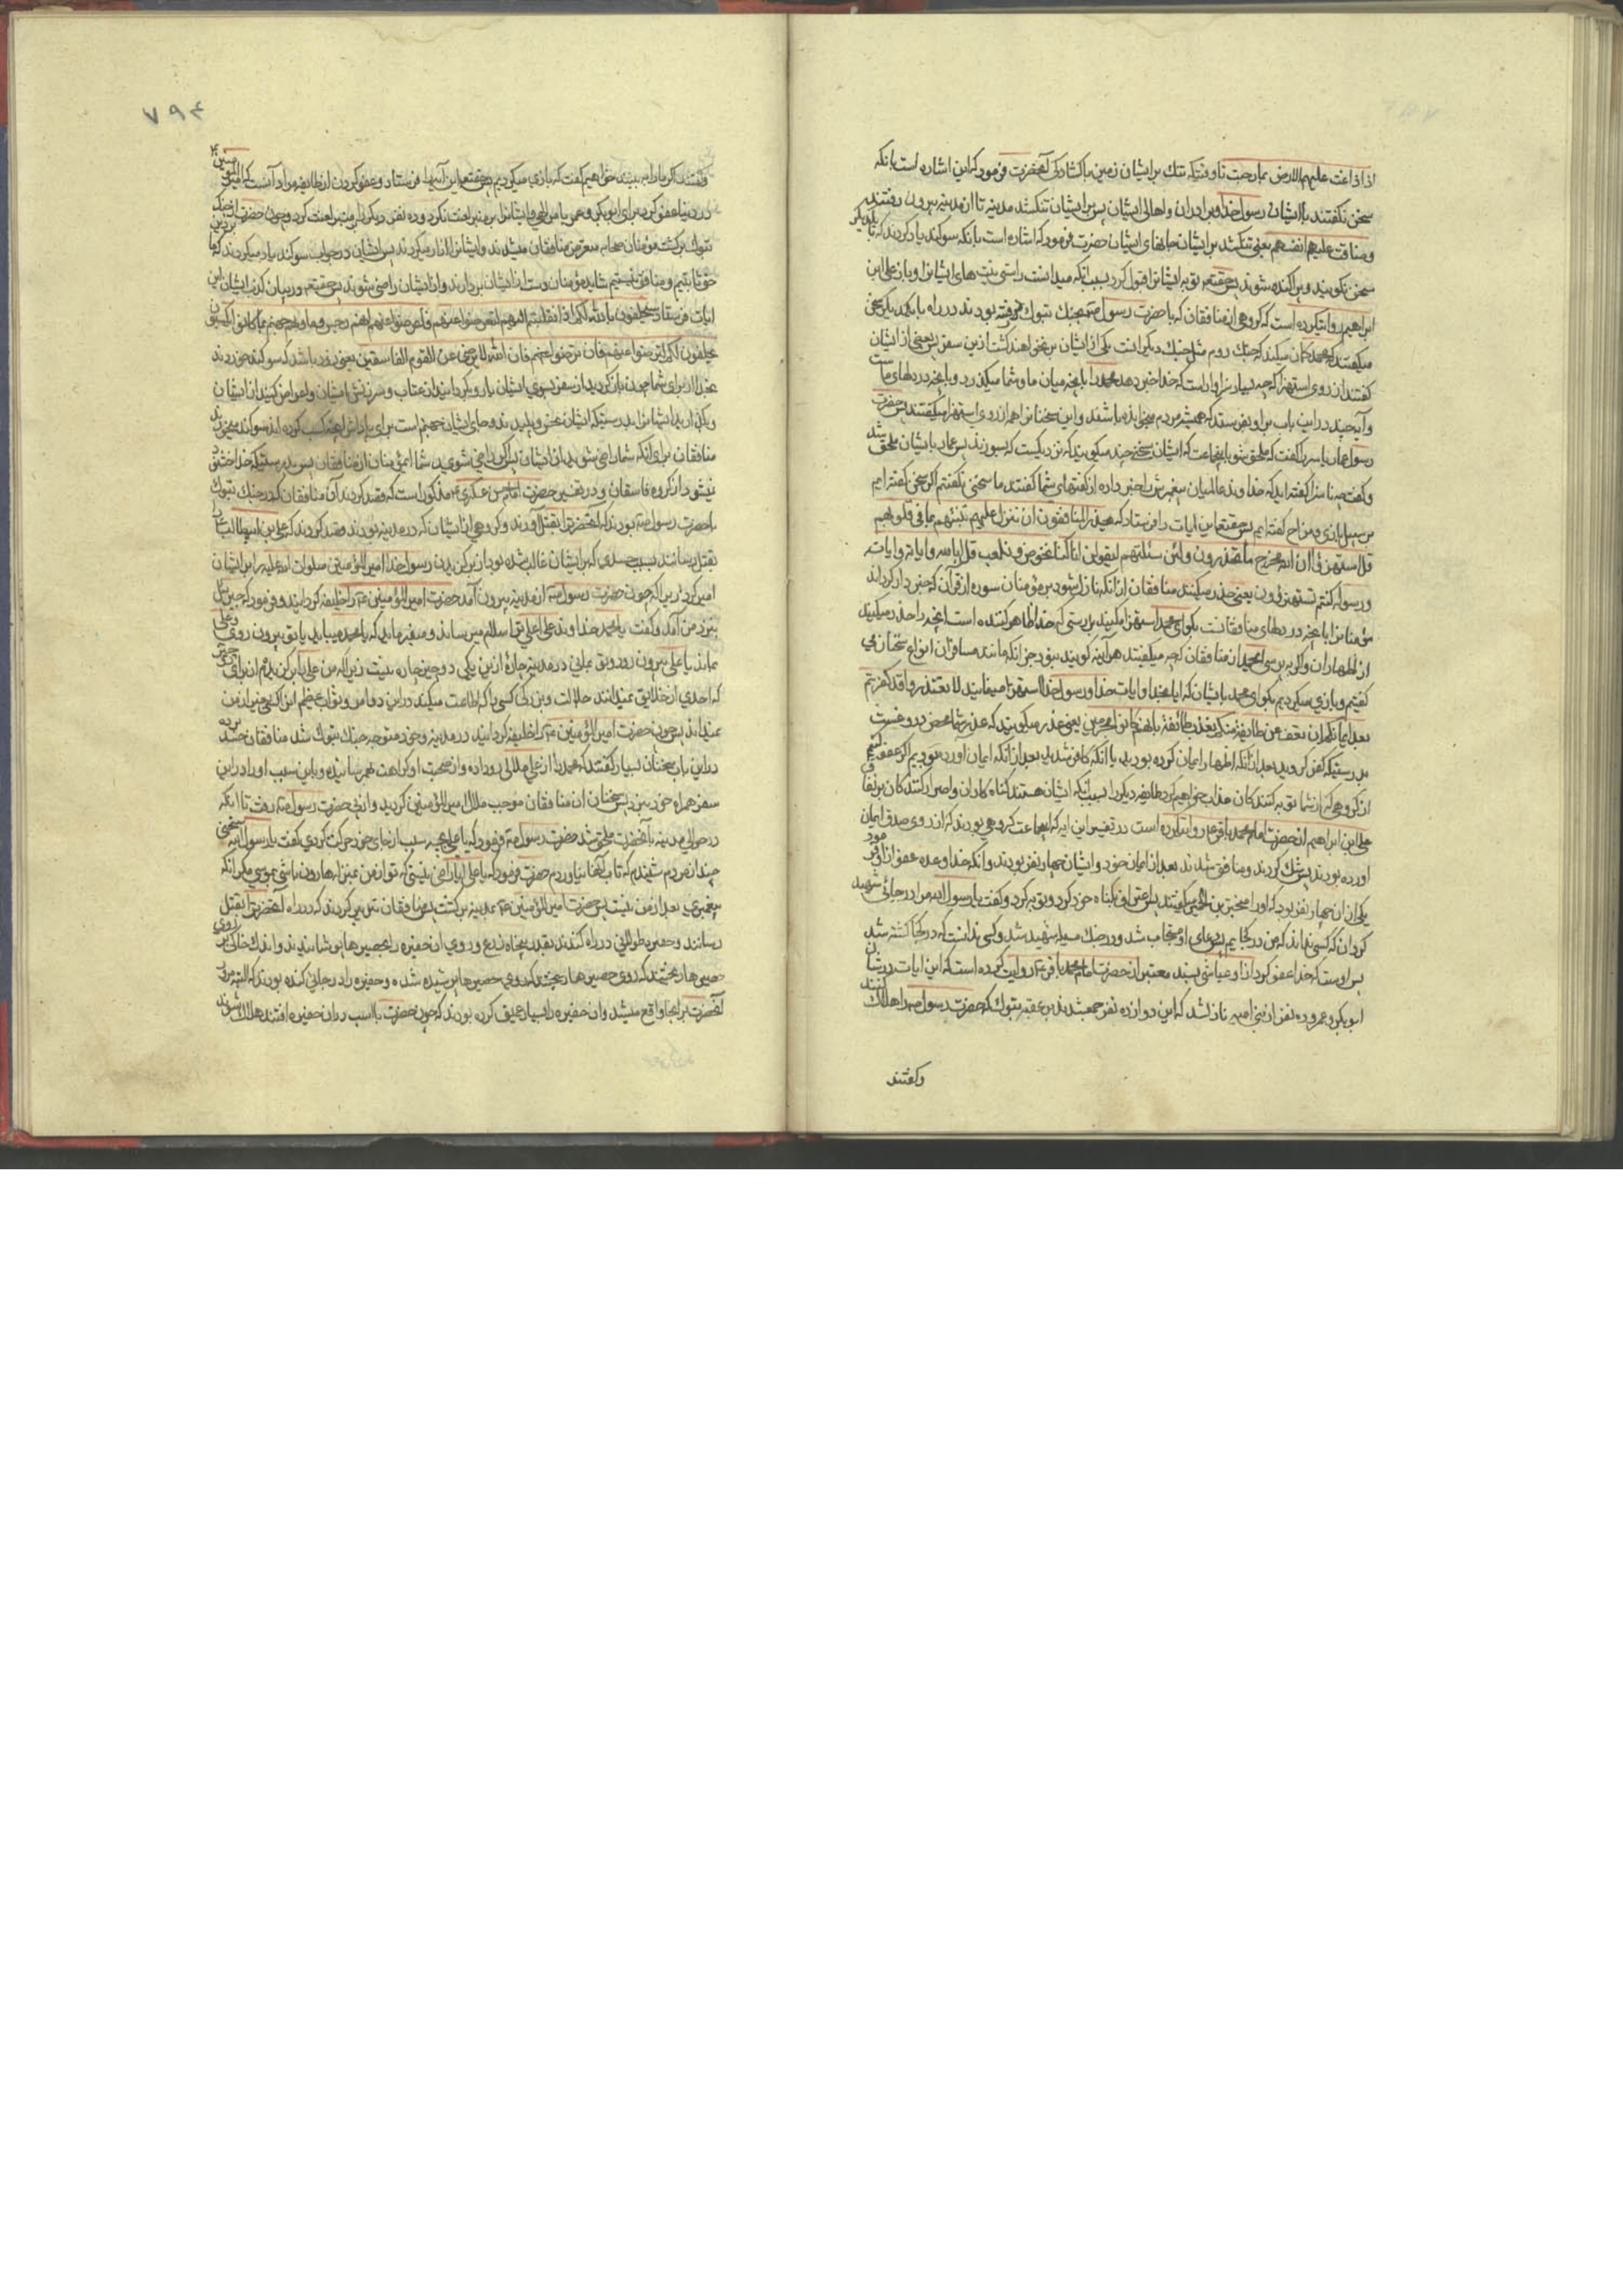 اذا ضاقت علیهم الارض بما رحبت تا وقتیکه تنک شد بر ایشان زمین با کشادکی آنحضرت فرمود که این اشاره است بانکه
سخن نکفتند با ایشان رسول خدا و برادران و اهالی ایشان پس بر ایشان تنک شد مدینه تا از مدینه بیرون رفتند
وضاقت علیهم انفسهم یعنی تنک شد بر ایشان جانهای ایشان حضرت فرمود که اشاره است بانکه سوکند یاد کردند که با یکدیکر
سخن نکویند و پراکنده شوند پس حقتعالی توبه ایشانرا قبول کرد بسبب انکه میدانست راستی نیت های ایشانرا و باز علی ابن
ابراهیم روایتکرده است که کروهی از منافقان که با حضرت رسول ص بجنک تبوک رفته بودند در راه با یکدیکر سخن
میکفتند که محمد کمان میکند که جنک روم مثل جنک دیکرانست یکی از ایشان بر نخواهند کشت ازین سفر پس بعضی از ایشان
کفتند از روی استهزا که چه بسیار سزاوار است که خدا خبر دهد محمد را بانچه میان ما و شما میکذرد و بانچه در دلهای ماست
و آیه چند در این باب بر او بفرستد که همیشه مردم بخوانده باشند و این سخنانرا همه از روی استهزا میکفتند پس حضرت
رسول عمار یاسر را کفت که ملحق شو باینجماعت که ایشان سخنی چند میکویند که نزدیکست که بسوزند پس عمار با ایشان ملحق شد
و کفت چه ناسزا کفته اید که خداوند عالمیان پیغمبرش را خبر داده از کفتهای شما کفتند ما سخنی نکفتیم اکر سخنی کفته ایم
بر سبیل بازی و مزاح کفته ایم پس حقتعالی این ایات را فرستاد که یحذر المنافقون ان تنزل علیهم تنبئهم بما فی قلوبهم
قل استهزؤا ان الله مخرج ما تحذرون ولئن سئلتهم لیقولن انما کنا نخوض ونلعب قل اباالله و ایاته
ورسوله کنتم تستهزؤن یعنی حذر میکنند منافقان از انکه نازل شود بر مؤمنان سوره از قرآن که خبر دار کرداند
مؤمنانرا بانچه در دلهای منافقانست بکو ای محمد استهزا بکنید بدرستی که خدا ظاهر کننده است انچه را حذر میکنید
از اظهار آن و اکر به پرسی ای محمد از منافقان که چه میکفتید هر آینه کویند نبود جز انکه مانند مسافران از انواع سخنان می
کفتیم و بازی میکردیم بکو ای محمد بایشان که ایا بخدا و ایات خدا و رسول خدا استهزا مینمایید لا تعتذروا قد کفرتم
بعد ایمانکم ان نعف عن طائفة منکم نعذب طائفة بانهم کانوا مجرمین یعنی عذر مکویید که عذر شما محض دروغست
بدرستیکه کفر کردید بعد از آنکه اظهار ایمان کرده بودید یا انکه کافر شدید بعد از انکه ایمان اورده بودید اکر عفو کنیم
از کروهی که از شما توبه کنند کان عذاب خواهیم کرد طایفه دیکر را بسبب انکه ایشان هستند کناه کاران و اصرار کنند کان بر نفاق
علی ابن ابراهیم از حضرت امام محمد باقر ع روایتکرده است در تفسیر این ایه که اینجماعت کروهی بودند که از روی صدق ایمان
اورده بودند پس شک کردند و منافق شدند بعد از ایمان خود و ایشان چهار نفر بودند و انکه خدا وعده عفو از او فرمود
یکی از ان چهار نفر بود که او را مخبر بن الحمیر میکفتند پس اعتراف بکناه خود کرد و توبه کرد و کفت یا رسول الله مرا در جائی شهید
کردان که کسی نداند که من در کجایم پس دعای او مستجاب شد و در جنک مسیلمه شهید شد و کسی ندانست که در کجا کشته شد
پس اوست که خدا عفو کرد از او و عیاشی بسند معتبر از حضرت امام محمد باقر ع روایت کرده است که این ایات در شان
ابو بکر و عمر و ده نفر از بنی امیه نازل شد که این دوازده نفر جمع شدند بر عقبه تبوک که حضرت رسول ص را هلاک کنند
وکفتند
۷۹۴
وکفتند اکر ما را به بینند خواهیم کفت که بازی میکردیم پس حقتعالی این آیتها فرستاد و عفو کردن از طایفه مراد آنست که امیر المؤمنین
در دنیا عفو کرد برای ابو بکر و عمر
تبوک برکشت مؤمنان صحابه معترض منافقان میشدند و ایشانرا آزار میکردند پس ایشان در جواب سوکند یاد میکردند که ما
بر حق ثابتیم و منافق نیستیم شاید مؤمنان دست از ایشان بردارند و از ایشان راضی شوند پس حقتعالی در بیان کذب ایشان این
ایات فرستاد سیحلفون بالله لکم اذا انقلبتم الیهم لتعرضوا عنهم فاعرضوا عنهم انهم رجس وماویهم جهنم بما کانوا یکسبون
یحلفون لکم لترضوا عنهم فان ترضوا عنهم فان الله لا یرضی عن القوم الفاسقین یعنی زود باشد که سوکند خورند
بخدا از برای شما چون باز کردید از سفر بسوی ایشان تا رو بکردانید از عتاب و سرزنش ایشان و اعراض کنید از ایشان
منافقان برای آنکه شما راضی شوید از ایشان پس اکر راضی شوید شما ای مؤمنان از منافقان پس بدرستیکه خدا خشنود
نیشود از کروه فاسقان و در تفسیر حضرت امام حسن عسکری ع مذکور است که قصد کردند آن منافقان که در جنک تبوک
با حضرت رسول ص بودند که آنحضرترا بقتل آورند و کروهی از ایشان که در مدینه بودند قصد کردند که علی بن ابیطالب را
بقتل رسانند بسبب حسدی که بر ایشان غالب شده بود از بزرکی دادن رسول خدا امیر المؤمنین صلوات الله علیه را بر ایشان
امیر کرد زیرا که چون حضرت رسول ص از مدینه بیرون آمد حضرت امیر المؤمنین ع را خلیفه کردانید و فرمود که جبرئیل
بنزد من آمد و کفت یا محمد خداوند علی اعلی ترا سلام میرساند و میفرماید که یا محمد میباید یا تو بیرون روی و علی
بماند یا علی بیرون رود و تو بمانی در مدینه چاره ازین یکی دو چیز چاره نیست زیرا که من علی را
که احدی از خلایق نمیدانند جلالت و بزرکی کسی را که اطاعت میکند در این دو امر و ثواب عظیم او را کسی غیر از من
نمیداند پس چون حضرت امیر المؤمنین ع را خلیفه کردانید در مدینه و خود متوجه جنک تبوک شد منافقان حسد برده
در این باب سخنان بسیار کفتند که محمد را از علی ملالی روداده و از صحبت او کراهت بهم رسانیده و باین سبب او را در این
سفر همراه خود نبرد پس سخنان ان منافقان موجب ملال امیر المؤمنین کردید و از پی حضرت رسول ص رفت تا انکه
در حوالی مدینه بآنحضرت ملحق شد حضرت رسول ص فرمود که یا علی بچه سبب از جای خود حرکت کردی کفت یا رسول الله سخنی
چند از مردم شنیدم که تاب آنها نیاوردم حضرت فرمود که یا علی ایا راضی نیستی که تو از من بمنزله هارون باشی بموسی مکر انکه
پیغمبری بعد از من نیست پس حضرت امیر المؤمنین ع بمدینه برکشت پس منافقان تدبیر کردند که در راه آنحضرترا بقتل
رسانند و حفیره طولانی در راه کندند بقدر پنجاه ذرع و روی ان حفیره را بحصیرها پوشانیدند و اندک خاکی بر روی
حصیرها ریختند که روی حصیرها پوشیده شده و حفیره را در جائی کنده بودند که البته مرور
آنحضرت بر انجا واقع میشد و ان حفیره را بسیار عمیق کرده بودند که چون حضرت با اسب در ان حفیره افتند هلاک شوند